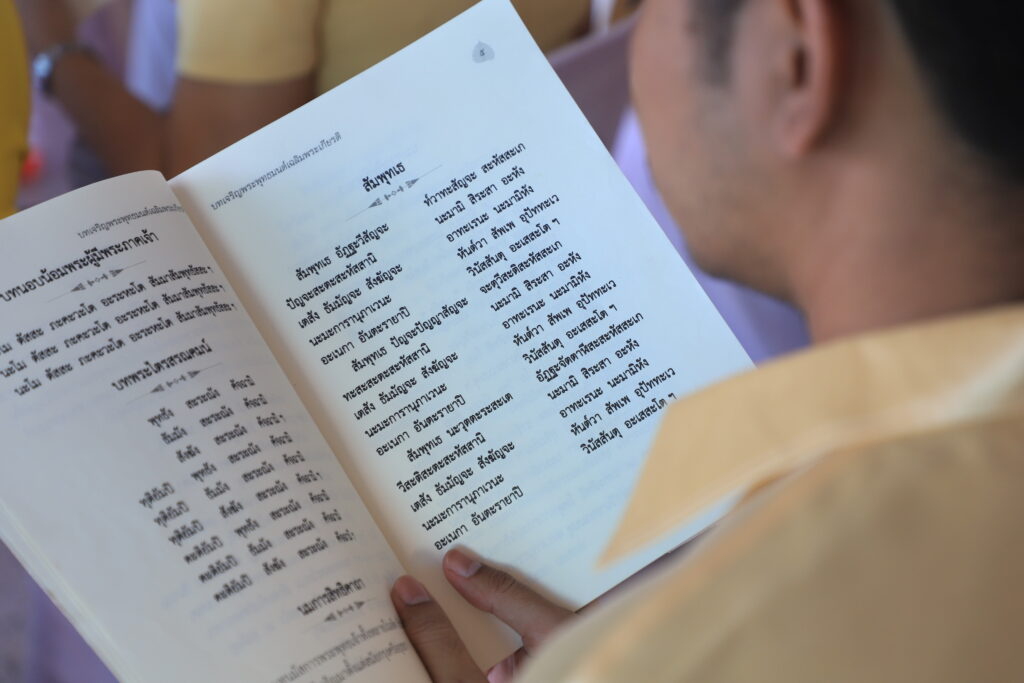 บทเจริญพระพุทธมนต์เฉลิมพระเกียรติ
บทนอบน้อมพระผู้มีพระภาคเจ้า
นะโม ตัสสะ ภะคะวะโต อะระหะโต สัมมาสัมพุทธัสสะ ฯ
นะโม ตัสสะ ภะคะวะโต อะระหะโต สัมมาสัมพุทธัสสะ ฯ
นะโม ตัสสะ ภะคะวะโต อะระหะโต สัมมาสัมพุทธัสสะ ฯ
บทพระไตรสรณคมน์
พุทธัง สะระณัง คัจฉามิ
ธัมมัง สะระณัง คัจฉามิ
สังฆัง สะระณัง คัจฉามิ ฯ
ทุติยัมปิ พุทธัง สะระณัง คัจฉามิ
ทุติยัมปิ ธัมมัง สะระณัง คัจฉามิ
ทุติยัมปิ สังฆัง สะระณัง คัจฉามิ
ตะติยัมปิ พุทธัง สะระณัง คัจฉามิ
ตะติยัมปิ ธัมมัง สะระณัง คัจฉามิ
ตะติยัมปิ สังฆัง สะระณัง คัจฉามิ
นมการสิทธิคาถา
๕
บทเจริญพระพุทธมนต์เฉลิมพระเกียรติ
สัมพุทเธ
สัมพุทเธ อัฏฐะวีสัญจะ ท๎วาทะสัญจะ สะหัสสะเก
ปัญจะสะตะสะหัสสานิ นะมามิ สิระสา อะหัง
เตสัง ธัมมัญจะ สังฆัญจะ อาทะเรนะ นะมามิหัง
นะมะการานุภาเวนะ หันต๎วา สัพเพ อุปัททะเว
อะเนกา อันตะรายาปิ วินัสสันตุ อะเสสะโต ฯ
สัมพุทเธ ปัญจะปัญญาสัญจะ จะตุวีสะติสะหัสสะเก
ทะสะสะตะสะหัสสานิ นะมามิ สิระสา อะหัง
เตสัง ธัมมัญจะ สังฆัญจะ อาทะเรนะ นะมามิหัง
นะมะการานุภาเวนะ หันต๎วา สัพเพ อุปัททะเว
อะเนกา อันตะรายาปิ วินัสสันตุ อะเสสะโต ฯ
สัมพุทเธ นะวุตตะระสะเต อัฏฐะจัตตาฬีสะสะหัสสะเก
วีสะติสะตะสะหัสสานิ นะมามิ สิระสา อะหัง
เตสัง ธัมมัญจะ สังฆัญจะ อาทะเรนะ นะมามิหัง
นะมะการานุภาเวนะ หันต๎วา สัพเพ อุปัททะเว
อะเนกา อันตะรายาปิ วินัสสันตุ อะเสสะโต ฯ